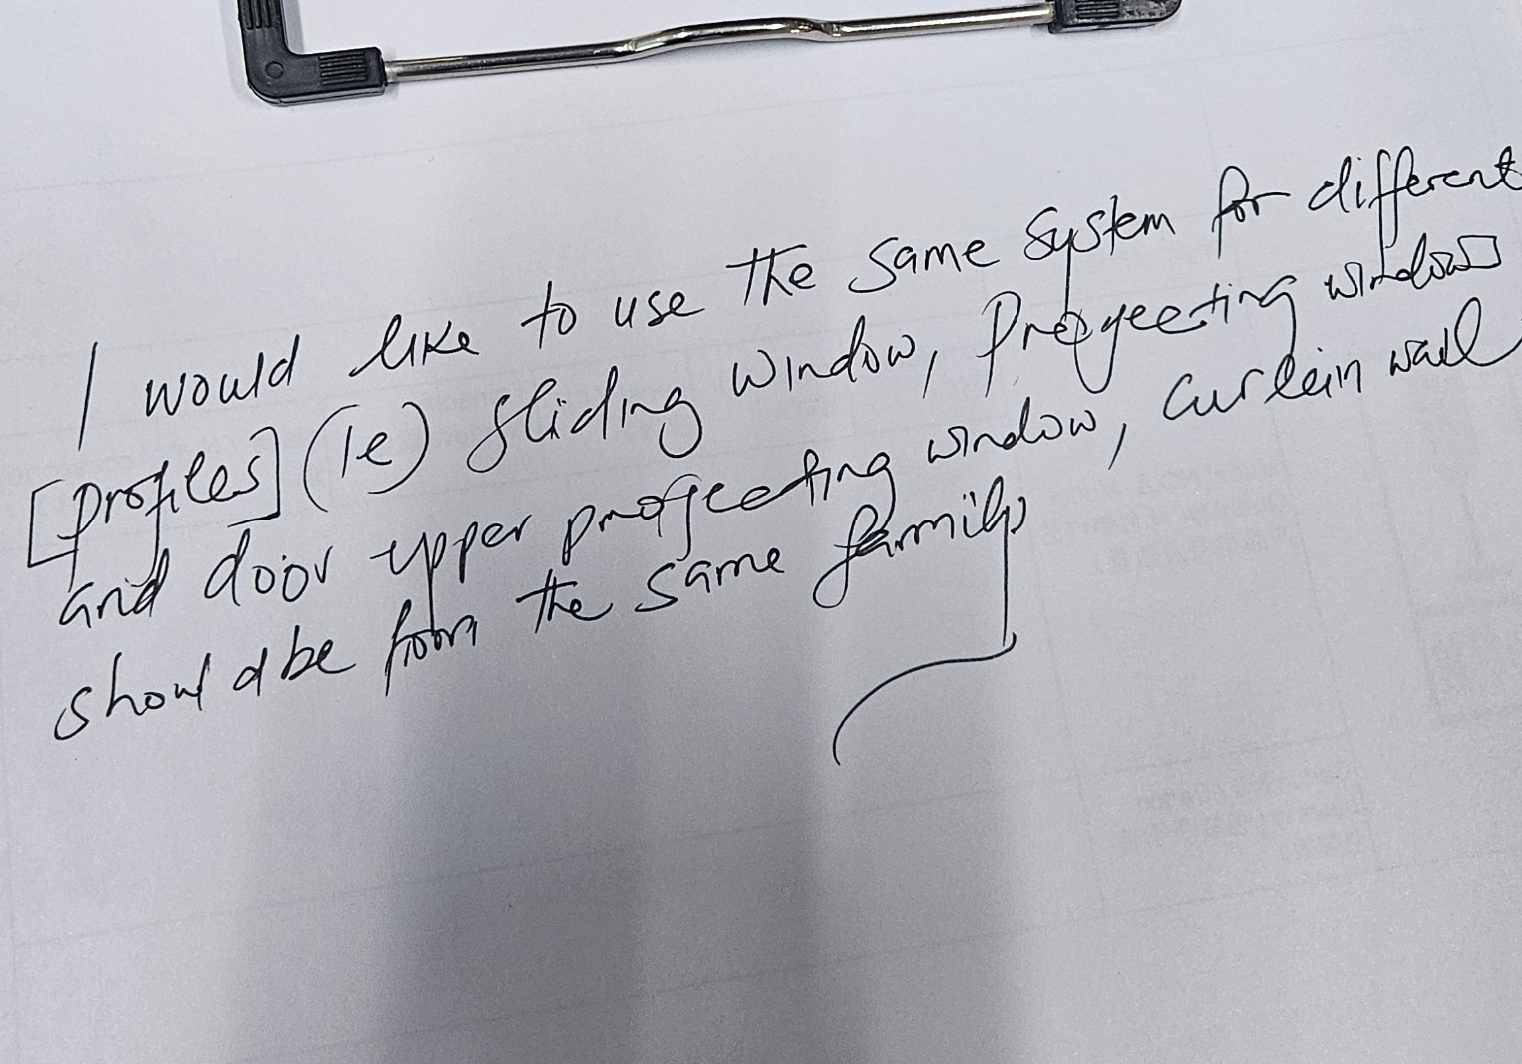 I would like to use the same system for different
[profiles] (ie) sliding window, Progeecting windows
and door upper profgeecting window, curtein wall
should be from the same family